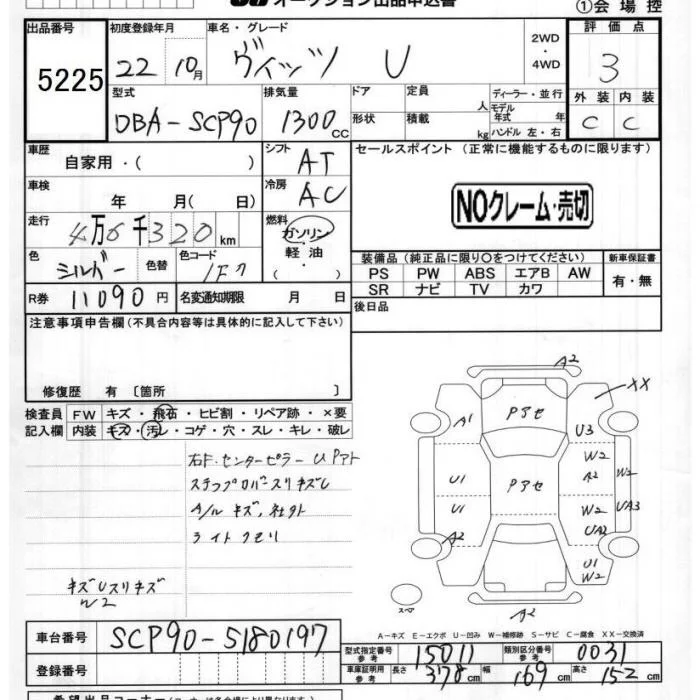 オークション出品申込書
①会場控
出品番号 初度登録年月 車名・グレード 2WD・4WD 評価点
5225 22 10月 ヴィッツ U 3
型式 排気量 ドア 定員 人 ディーラー・並行 外装 内装
DBA-SCP90 1300CC 形状 積載 kg モデル年式 年 ハンドル 左・右 C C
車歴 自家用・( ) シフト AT セールスポイント (正常に機能するものに限ります)
車検 年 月( 日) 冷房 AC
NOクレーム・売切
走行 4万6千320km 燃料 ガソリン・軽油・( )
色 シルバー 色替 色コード 1F7
装備品 (純正品に限り○をつけてください) 新車保証書
PS PW ABS エアB AW 有・無
SR ナビ TV カワ
R券 11090円 名変通知期限 月 日 後日品
注意事項申告欄(不具合内容等は具体的に記入して下さい)
修復歴 有〔箇所 〕
検査員 FW キズ・飛石・ヒビ割・リペア跡・×要
記入欄 内装 キズ・汚レ・コゲ・穴・スレ・キレ・破レ
右F.センターピラー U Pアト
ステップロバースリキズU
A/ル キズ,社外
ライトクモリ
キズUスリキズ
W2
A2
XX
A1 Pアセ U3
W2
U1 A2 W2
Pアセ
U1 W2 UA3
A2 UA2
U1
W2
スペア A2
A-キズ E-エクボ U-凹み W-補修跡 S-サビ C-腐食 XX-交換済
車台番号 SCP90-5180197
型式指定番号 参考 15011 類別区分番号 参考 0031
登録番号 車庫証明用 参考 長さ 378cm 幅 169cm 高さ 152cm
希望出品コーナー